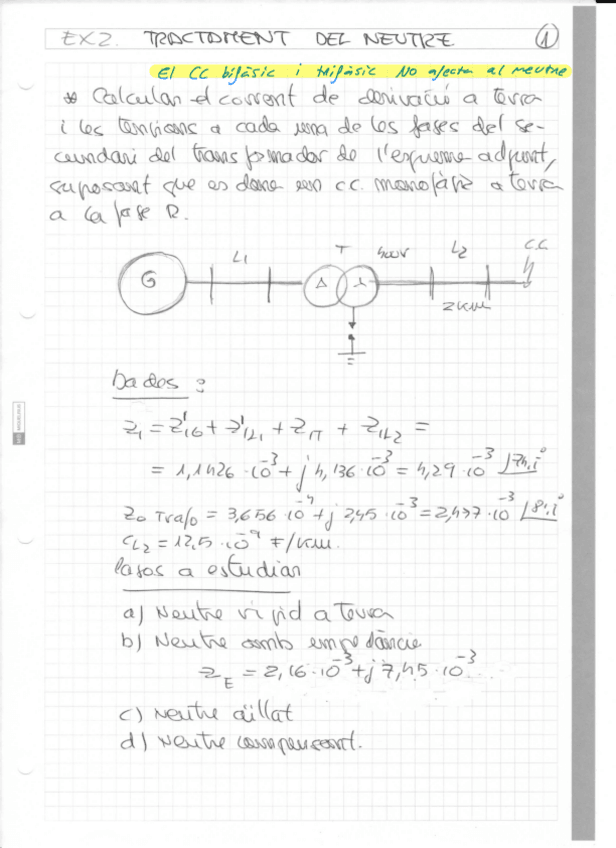 EX2. TRACTAMENT DEL NEUTRE 1
El CC bifàsic i trifàsic NO afecta al neutre
* Calcular el corrent de derivació a terra
i les tensions a cada una de les fases del se-
cundari del transformador de l'esquema adjunt,
suposant que es dona un cc. monofàsic a terra
a la fase R.
G L1 T Δ 400V L2 2KM C.C.
Dades:
Z1 = Z'1G + Z'1L1 + Z1T + Z1L2 =
= 1,1426·10^-3 + j 4,136·10^-3 = 4,29·10^-3 ∠74,1°
Z0 Trafo = 3,656·10^-4 + j 2,45·10^-3 = 2,477·10^-3 ∠81,1°
CL2 = 12,5·10^-9 F/KM.
Casos a estudiar
a) Neutre rigid a Terra
b) Neutre amb impedància
ZE = 2,16·10^-3 + j 7,45·10^-3
c) Neutre aïllat
d) Neutre compensant.